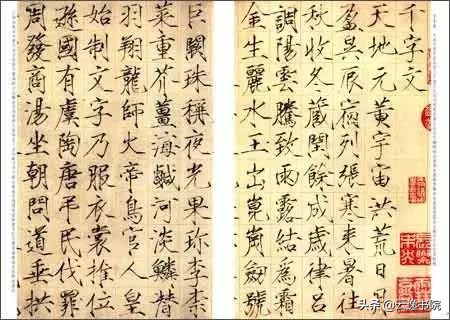 千字文
天地元黄宇宙洪荒日月
盈昃辰宿列張寒来暑往
秋收冬蔵閏餘成歳律吕
調陽雲騰致雨露結為霜
金生麗水玉出崑崗劒號
巨闕珠稱夜光果珎李柰
菜重芥薑海鹹河淡鱗潛
羽翔龍師火帝鳥官人皇
始制文字乃服衣裳推位
遜國有虞陶唐弔民伐罪
周發商湯坐朝問道垂拱
头条 @云逸书院